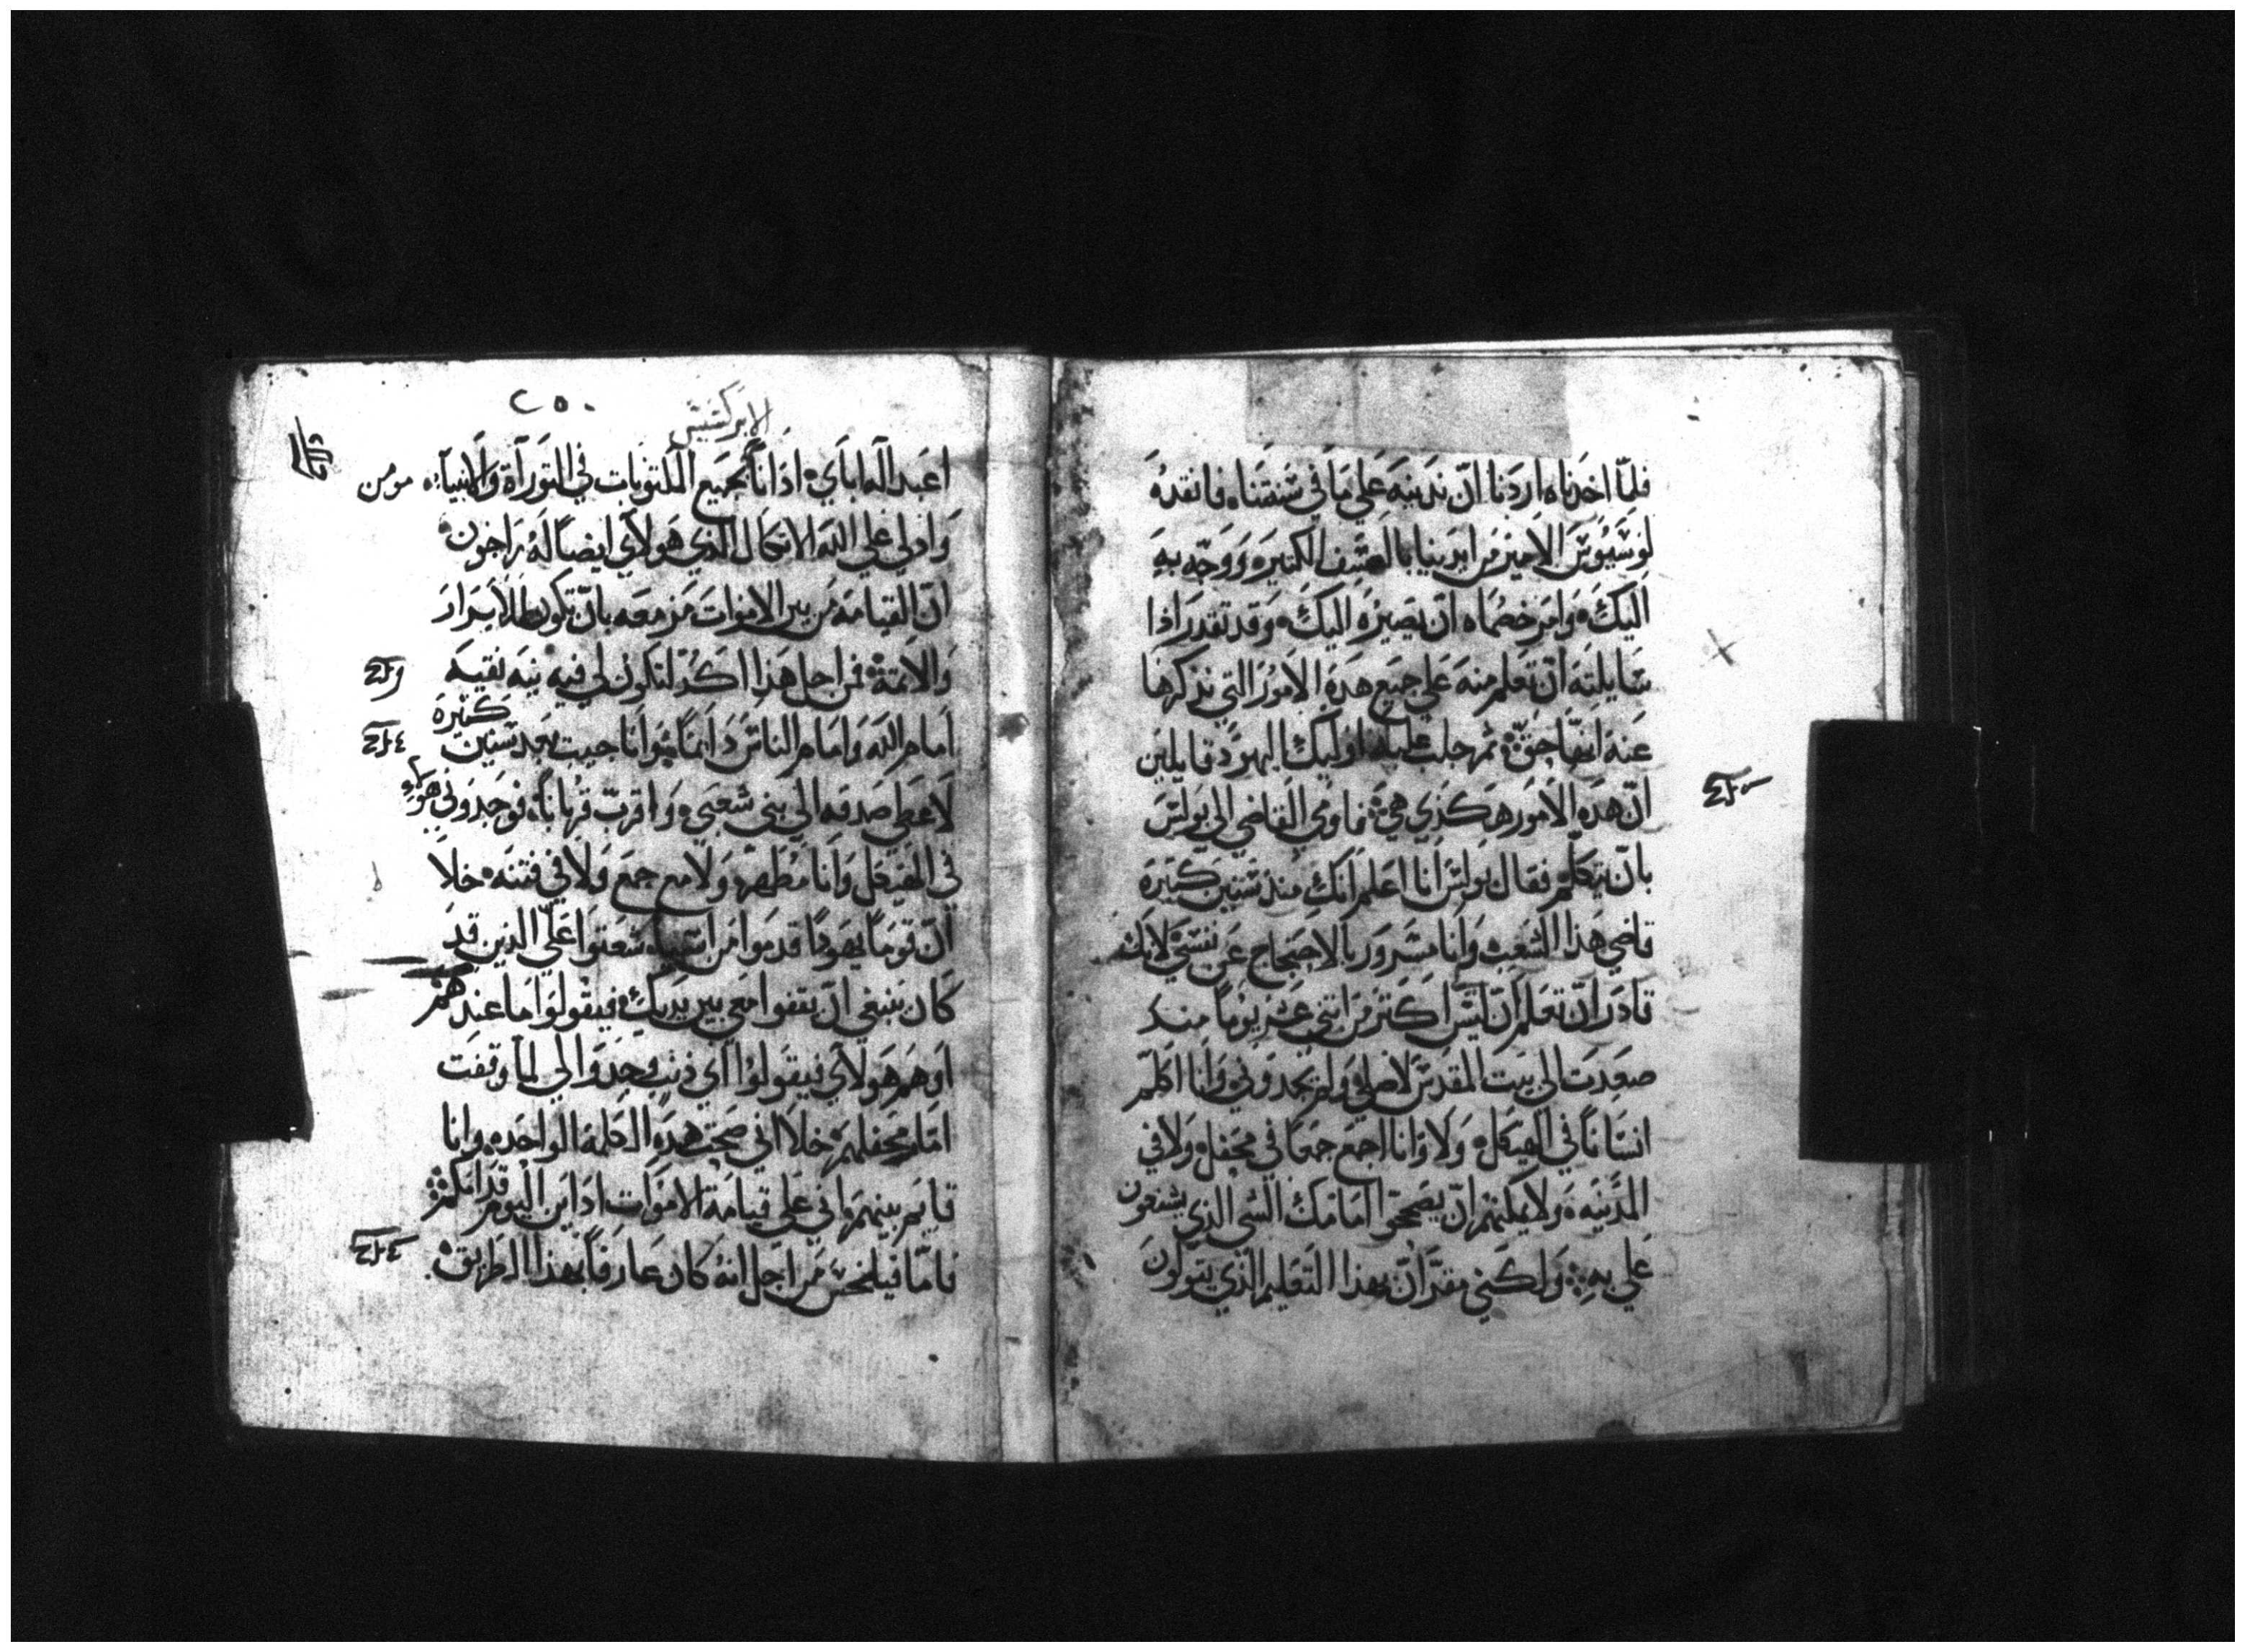 فلمّا اخدناه اردنا ان ندينه على ما في سنتنا فانقده
لوسيوس الامير من ايدينا بالعسف الكتيره ووجه به
اليك وامر خصماه ان يصيره اليك وقد تقدر اذا
سايلته ان تعلم منه على جميع هده الامور التي ندكرها
عنه انها حق ثم جلب عليه اوليك اليهود قايلين
ان هده الامور هكذي هي فاومي القاضي الي بولس
بان يتكلم فقال بولس انا اعلم انك مند سنين كتيره
قاضي هذا الشعب وانا مسرور بالاحتجاج عن نفسي لانك
قادر ان تعلم ان ليس اكتر من اتني عشر يوماً مند
صعدت الى بيت المقدس لاصلي ولم يجدوني وانا اكلم
انساناً في الهيكل ولا وانا اجمع جمعاً في محفل ولا في
المدينه ولا يمكنهم ان يصححوا امامك الشي الذي يشنعون
علي به ولكني مقر ان بهذا التعليم الذي يقولون
الابركسيس
٢٥٠
اعبد اله اباي اد انا بجميع المكتوبات في التوراة والانبياء مومن
واد لي على الله الاتكال الذي هولاي ايضاً له راجون
ان القيامه من بين الاموات مزمعه بان تكون للابرار
والاتمة فمن اجل هذا اكد لتكون لي فيه نيه نقيه
امام الله وامام الناس دايماً وانا جيت بعد سنين كتيرة
لاعطي صدقه الي بني شعبي واقرب قرباناً فوجدوني هولاء
في الهيكل وانا مطهر ولا مع جمع ولا في فتنه خلا
ان قوماً يهوداً قدموا من اسيا شعتوا علي الدين قد
كان ينبغي ان يقفوا معي بين يديك فيقولوا ما عندهم
او هم هولاي فيقولوا اي ذنب وجدوا لي لما وقفت
امام محفلهم خلا اني صحت هده الكلمه الواحده وانا
قايم بينهم واني على قيامة الاموات ادان اليوم قدامكم
فاما فيلخس من اجل انه كان عارفاً بهذا الطريق